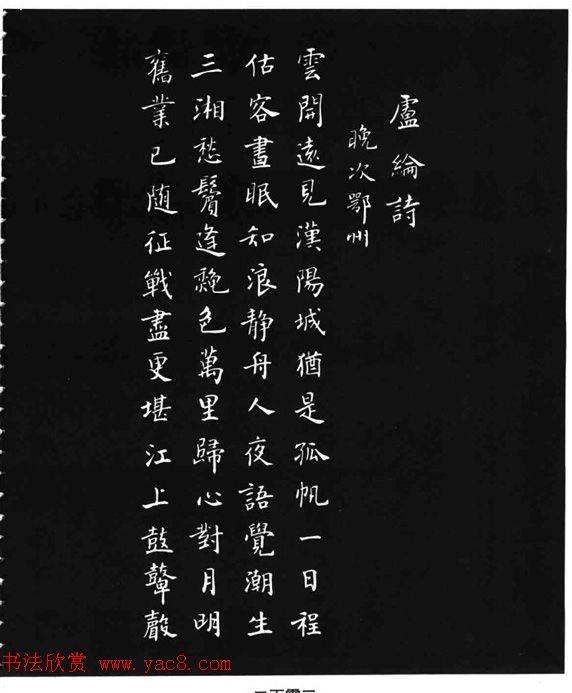 盧綸詩
晚次鄂州
雲開遠見漢陽城猶是孤帆一日程
估客晝眠知浪静舟人夜語覺潮生
三湘愁鬢逢穐色萬里歸心對月明
舊業已随征戰盡更堪江上鼓鼙聲
书法欣赏 www.yac8.com